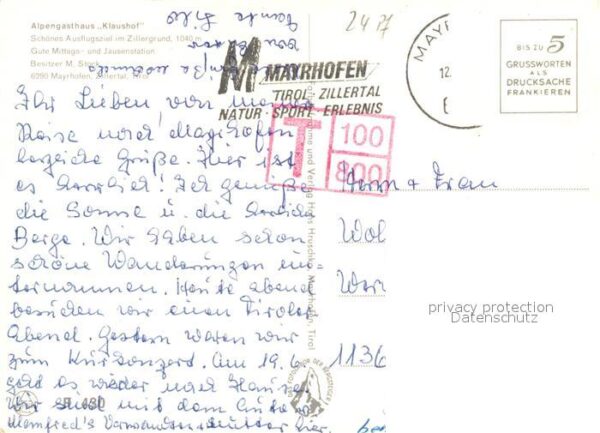 Alpengasthaus „Klaushof"
Schönes Ausflugsziel im Zillergrund, 1040 m
Gute Mittags- und Jausenstation
Besitzer M. Stock
6290 Mayrhofen, Zillertal, Tirol
24 17
MAYRHOFEN
TIROL · ZILLERTAL
NATUR · SPORT · ERLEBNIS
MAYR
12.
BIS ZU 5
GRUSSWORTEN
ALS
DRUCKSACHE
FRANKIEREN
T 100
800
Ihr Lieben, von meiner
Reise nach Mayrhofen
herzliche Grüße. Hier ist
es herrlich! Ich genieße
die Sonne u. die
Berge. Wir haben schon
schöne Wanderungen un-
ternommen. Heute abend
besuchen wir einen Tiroler
Abend. Gestern waren wir
zum Kurkonzert. Am 19.6
geht es wieder nach Hause.
Wir sind mit dem Auto
Manfred's hier.
Herrn + Frau
Wol
Wer
1136
Verlag Hans Hruschka, Mayrhofen, Tirol
R 480
privacy protection
Datenschutz